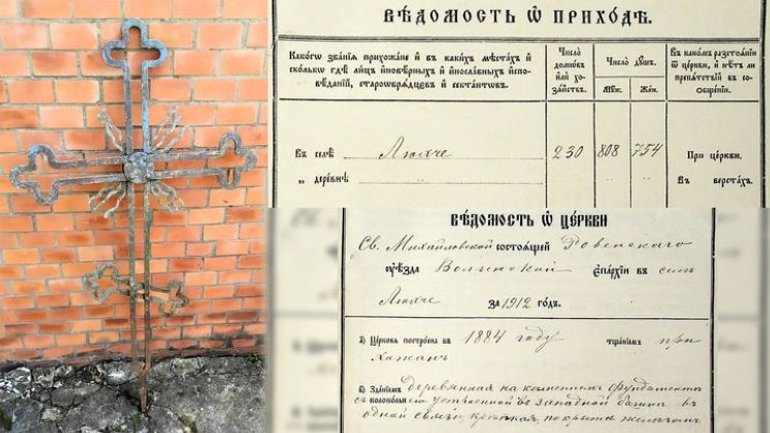 ВѢДОМОСТЬ Ѡ ПРИХОДѢ.
Какогѡ званїѧ прихожане и въ какихъ мѣстахъ и
сколькѡ гдѣ лицъ иновѣрныхъ и инославныхъ испо-
вѣданїй, старообрѧдцевъ и сектантовъ.
Число
домовъ
или хо-
зѧйствъ.
Число душъ.
Муж.
Жен.
Въ какомъ разстоѧнїи
ѿ церкви, и нѣтъ ли
препѧтствїй въ со-
общенїи.
Въ селѣ Люхче 230 808 754 При церкви.
„ деревнѣ Въ верстахъ.
ВѢДОМОСТЬ Ѡ ЦЕРКВИ
Св. Михайловской состоящей Ровенскаго
уѣзда Волынской епархїи въ селѣ
Люхче за 1912 годъ.
1) Церковь построена въ 1884 году тщанїемъ при
хожанъ
2) Зданїемъ деревянная на каменномъ фундаментѣ
съ колокольнею устроенной въ западной башнѣ въ
одной связи, крѣпкая, покрыта желѣзомъ